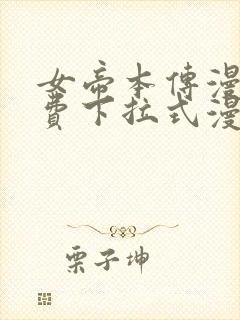 女帝本傳漫
費下拉式漫
栗子坤